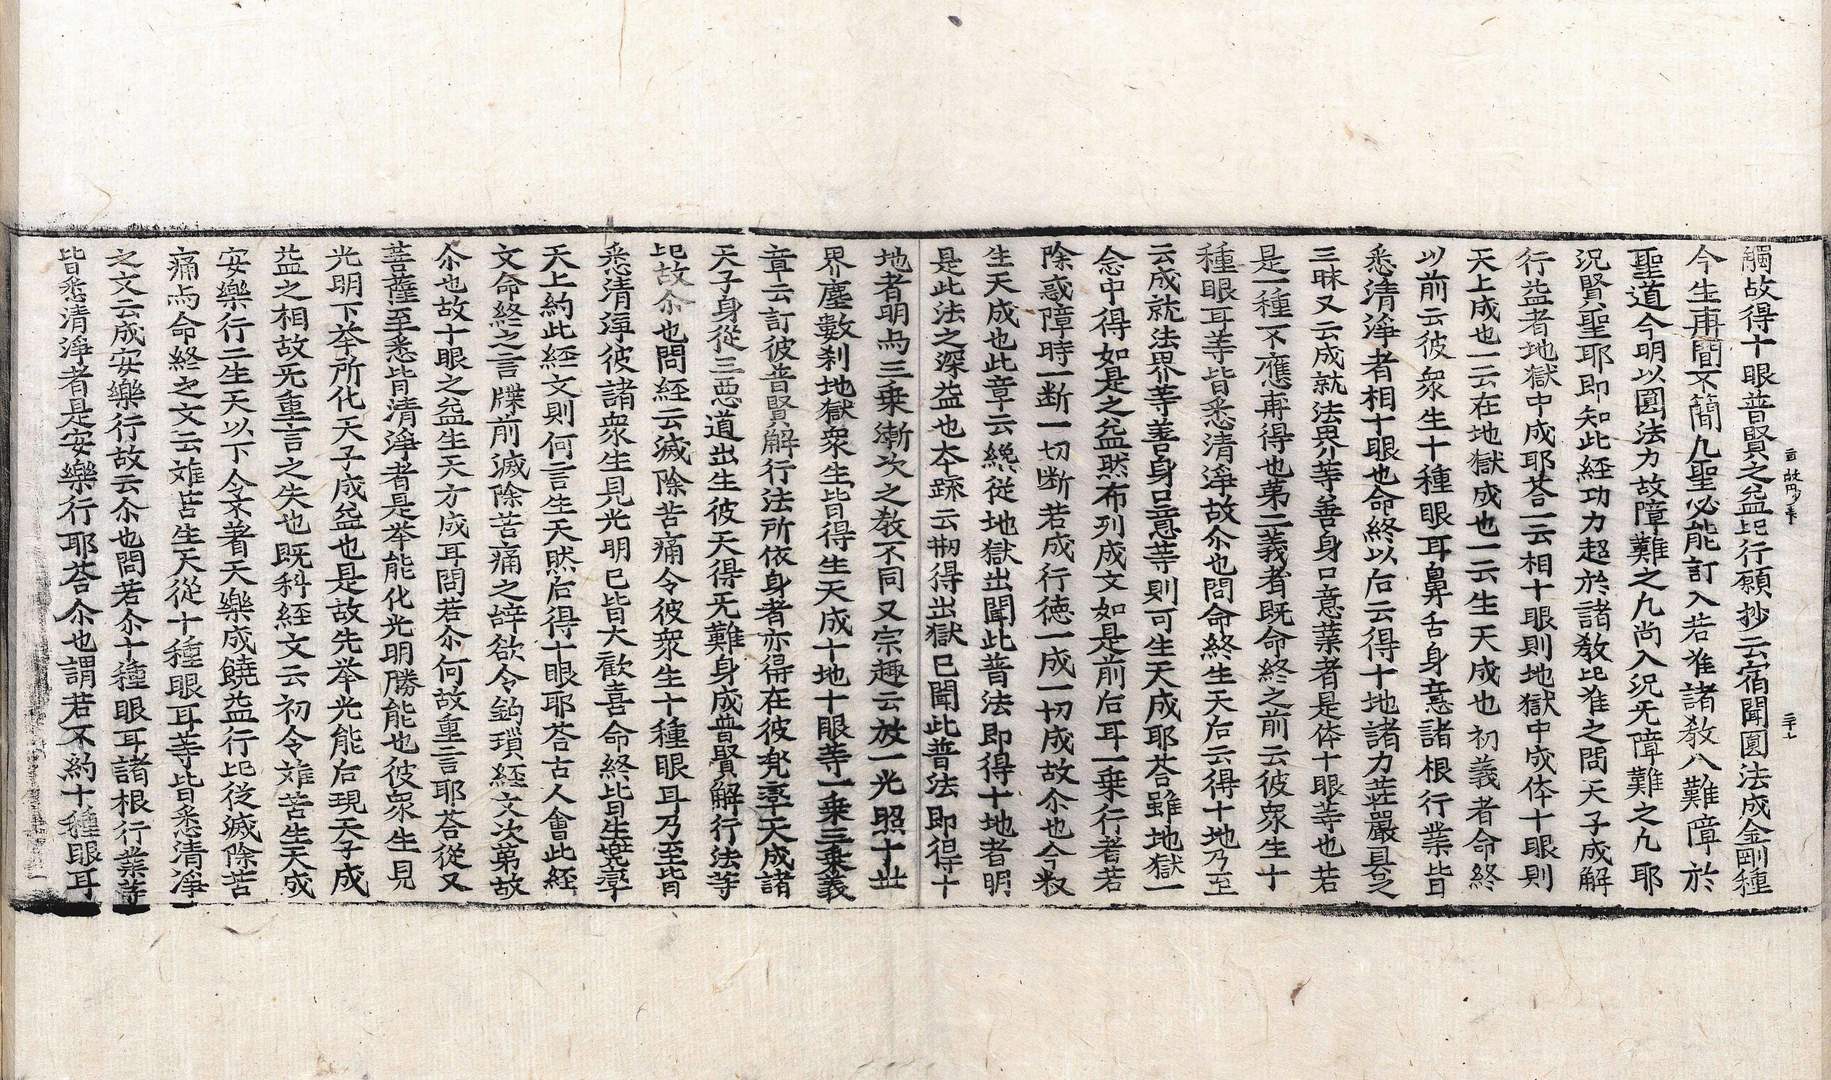 觸故得十眼普賢之益此行願抄云宿聞圓法成金剛種
今生再聞不簡凡聖必能訂入若准諸教八難障於
聖道今明以圓法力故障難之凡尚入況无障難之凡耶
況賢聖耶即知此經功力超於諸教比准之問天子成解
行益者地獄中成耶荅一云相十眼則地獄中成体十眼則
天上成也一云在地獄成也一云生天成也初義者命終
以前云彼衆生十種眼耳鼻舌身意諸根行業皆
悉清淨者相十眼也命終以后云得十地諸力莊嚴具足
三昧又云成就法界等善身口意業者是体十眼等也若
是一種不應再得也第二義者既命終之前云彼衆生十
種眼耳等皆悉清淨故尒也問命終生天后云得十地乃至
云成就法界等善身口意等則可生天成耶荅雖地獄一
念中得如是之益然布列成文如是前后耳一乗行者若
除惑障時一断一切断若成行徳一成一切成故尒也今釈
生天成也此章云緫從地獄出聞此普法即得十地者明
是此法之深益也夲疏云刱得出獄已聞此普法即得十
地者明与三乗漸次之教不同又宗趣云放一光照十世
界塵數刹地獄衆生皆得生天成十地十眼等一乗三乗義
章云訂彼普賢解行法所依身者亦得在彼兜率天成諸
天子身從三惡道出生彼天得无難身成普賢解行法等
此故尒也問經云滅除苦痛令彼衆生十種眼耳乃至皆
悉清淨彼諸衆生見光明已皆大歡喜命終皆生兜率
天上約此經文則何言生天然后得十眼耶荅古人會此經
文命終之言牒前滅除苦痛之辝欲令鈎瑣經文次第故
尒也故十眼之益生天方成耳問若尒何故重言耶荅從又
菩薩至悉皆清淨者是举能化光明勝能也彼衆生見
光明下举所化天子成益也是故先举光能后現天子成
益之相故无重言之失也既科經文云初令难苦生天成
安樂行二生天以下令不著天樂成饒益行此從滅除苦
痛与命終之文云难苦生天從十種眼耳等皆悉清淨
之文云成安樂行故云尒也問若尒十種眼耳諸根行業等
皆悉清淨者是安樂行耶荅尒也謂若不約十種眼耳